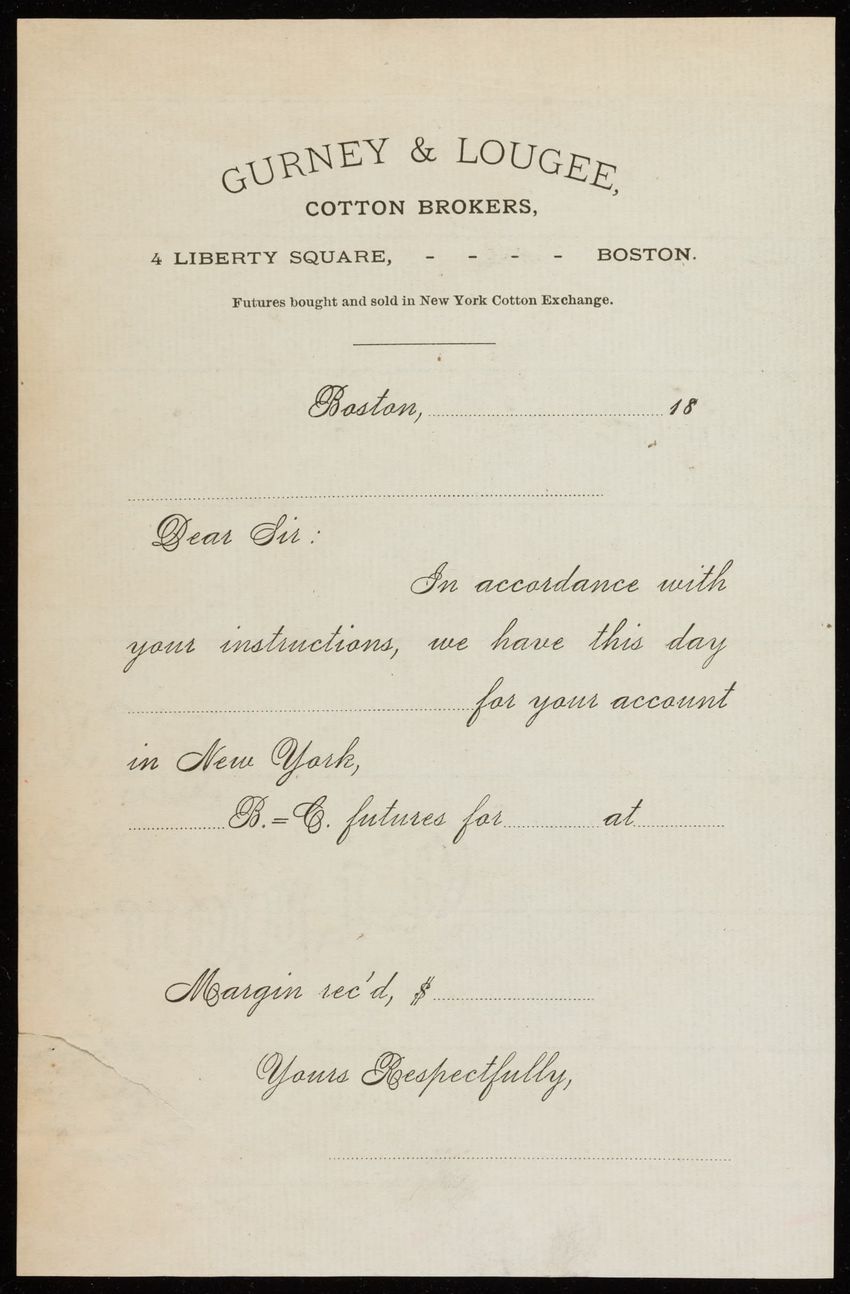 GURNEY & LOUGEE,
COTTON BROKERS,
4 LIBERTY SQUARE, - - - - BOSTON.
Futures bought and sold in New York Cotton Exchange.
Boston, 18
Dear Sir:
In accordance with
your instructions, we have this day
for your account
in New York,
B.=C. futures for at
Margin rec'd, $
Yours Respectfully,